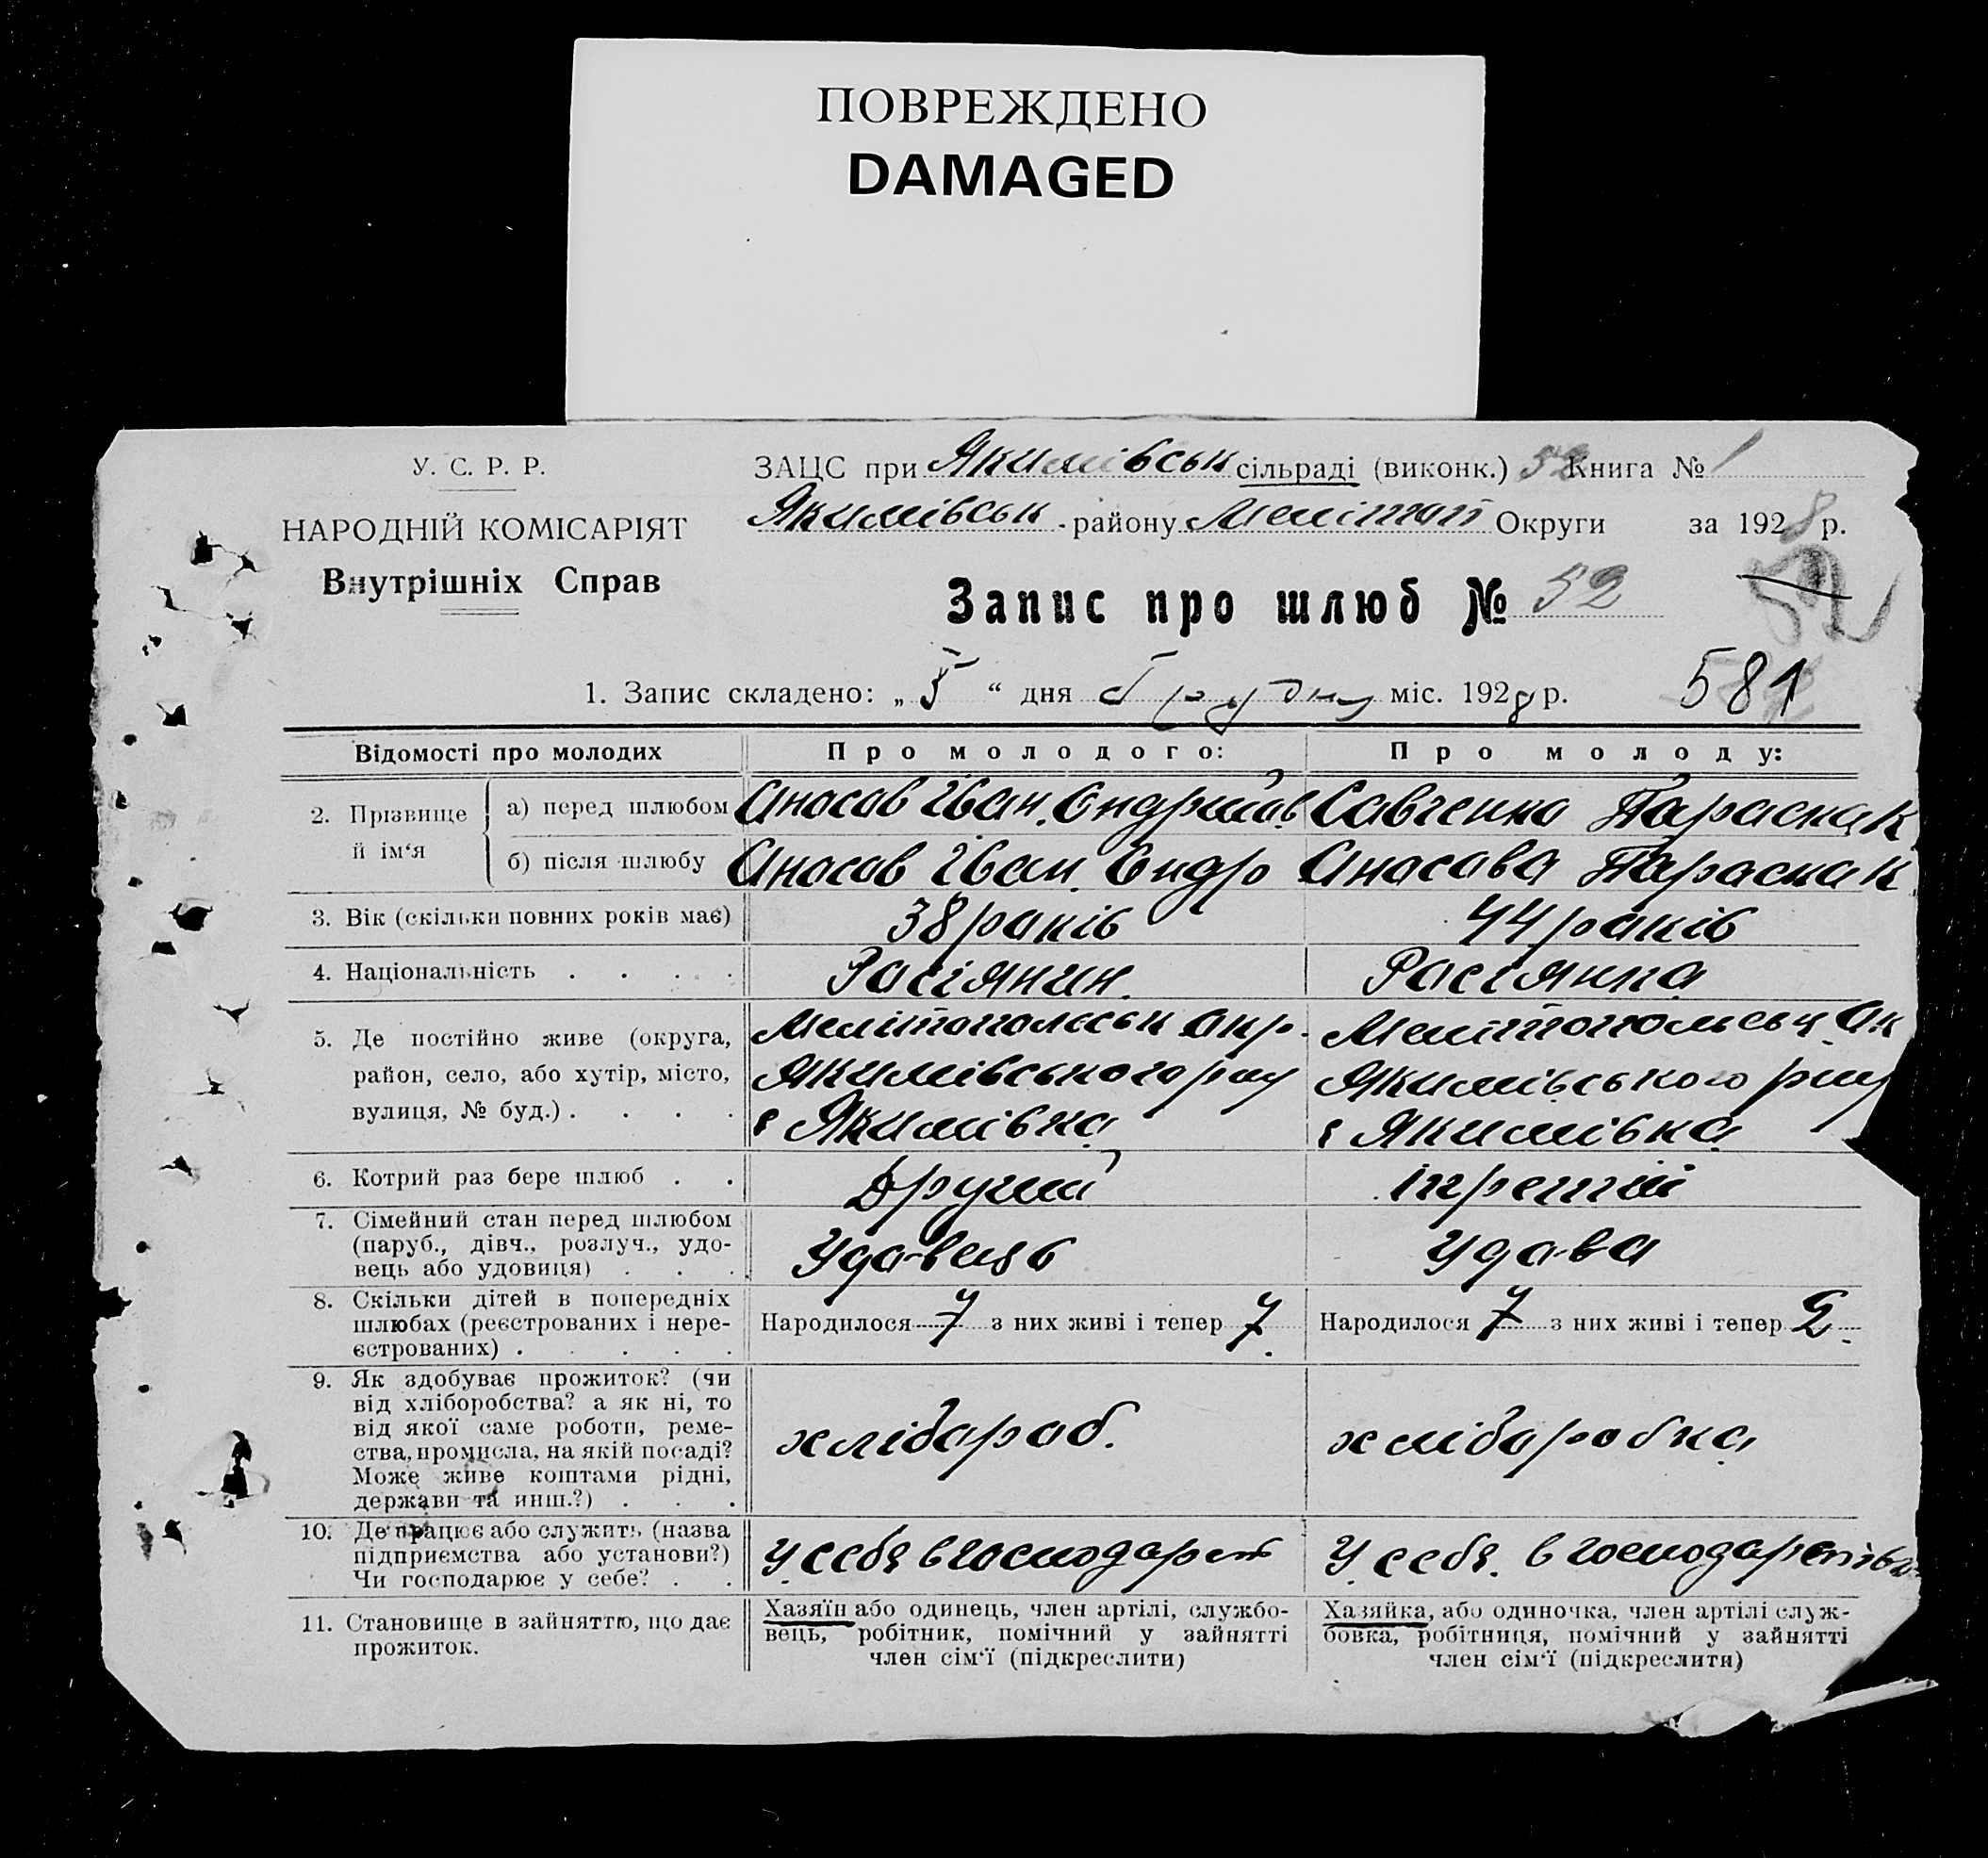 ПОВРЕЖДЕНО
DAMAGED
У. С. Р. Р.
НАРОДНІЙ КОМІСАРІЯТ
Внутрішніх Справ
ЗАЦС при Якимівськ сільраді (виконк.) 52 Книга № 1
Якимівськ. району Мелітоп Округи за 1928 р.
Запис про шлюб № 52
52
1. Запис складено: „5“ дня Грудня міс. 1928 р.
581
Відомості про молодих
Про молодого:
Про молоду:
2. Прізвище й ім‘я
а) перед шлюбом
Аносов Іван. Андрийов
Савченко Параска К
б) після шлюбу
Аносов Іван. Андр
Аносова Параска К
3. Вік (скільки повних років має)
38 років
44 років
4. Національність . . . .
Расіянин.
Расіянка
5. Де постійно живе (округа,
район, село, або хутір, місто,
вулиця, № буд.) . . . .
Мелітопольськ окр.
Якимівського рну
с Якимівка
Мелітопольськ Ок
Якимівського рну
с Якимівка
6. Котрий раз бере шлюб . .
Другий
третій
7. Сімейний стан перед шлюбом
(паруб., дівч., розлуч., удо-
вець або удовиця) . . .
Удавець
Удава
8. Скільки дітей в попередніх
шлюбах (реєстрованих і нере-
єстрованих) . . . . .
Народилося 7 з них живі і тепер 7.
Народилося 7 з них живі і тепер 2.
9. Як здобуває прожиток? (чи
від хліборобства? а як ні, то
від якої саме роботи, реме-
ства, промисла, на якій посаді?
Може живе коштами рідні,
держави та инш.?) . . .
хлібароб.
хлібаробка
10. Де працює або служить (назва
підприємства або установи?)
Чи господарює у себе? . .
У себя в господарст
У себя. в господарстве
11. Становище в зайняттю, що дає
прожиток.
Хазяїн або одинець, член артілі, службо-
вець, робітник, помічний у зайнятті
член сім‘ї (підкреслити)
Хазяйка, або одиночка, член артілі служ-
бовка, робітниця, помічний у зайнятті
член сім‘ї (підкреслити)